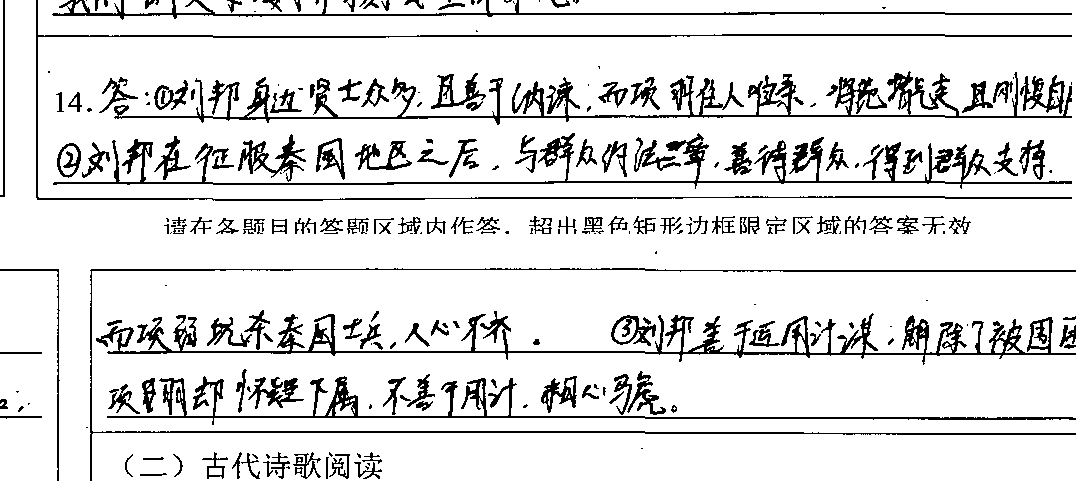 14. 答:①刘邦身边贤士众多,且善于纳谏;而项羽任人唯亲,将范增气走且刚愎自
②刘邦在征服秦国地区之后,与群众约法三章,善待群众,得到群众支持.
请在各题目的答题区域内作答,超出黑色矩形边框限定区域的答案无效
而项羽坑杀秦国士兵,人心不齐. ③刘邦善于运用计谋,解除了被围困
项羽却怀疑下属,不善于用计,粗心马虎。
(二)古代诗歌阅读